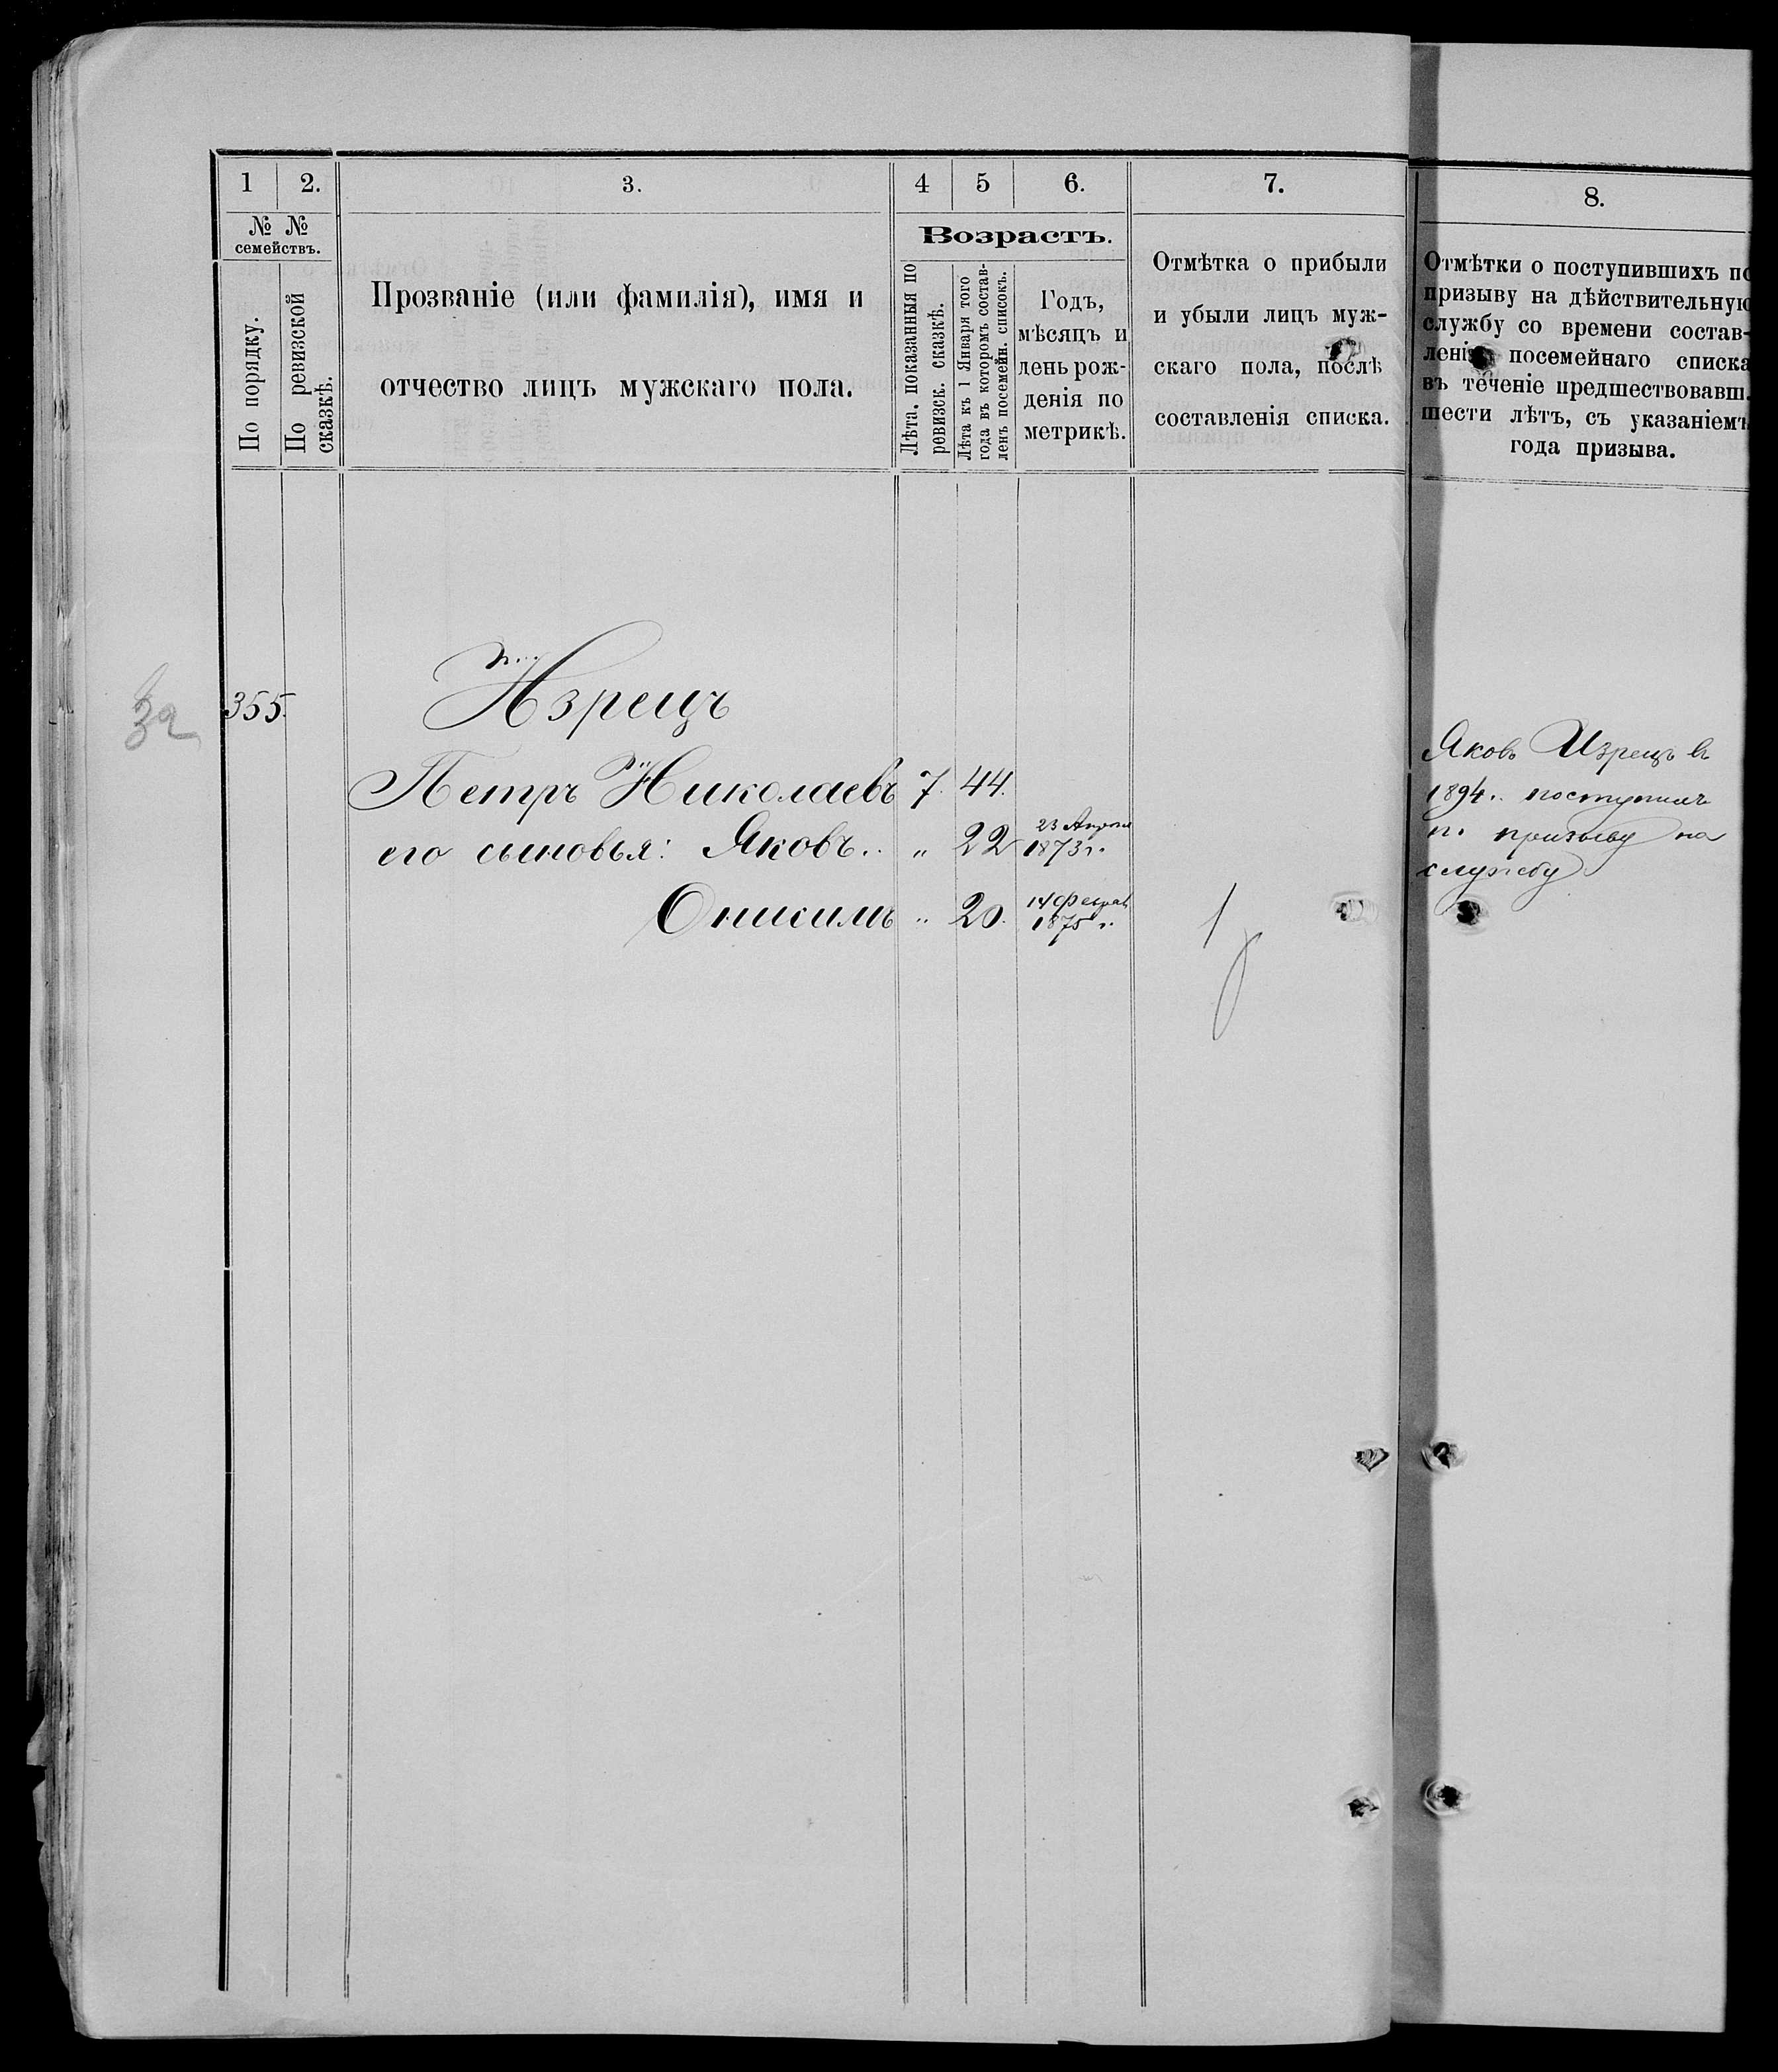 1 2. 3. 4 5 6. 7. 8.
№ № семействъ.
По порядку.
По ревизской сказкѣ.
Прозваніе (или фамилія), имя и
отчество лицъ мужскаго пола.
Возрастъ.
Лѣта, показанныя по
ревизск. сказкѣ.
Лѣта къ 1 Января того
года въ которомъ состав-
ленъ посемейн. списокъ.
Годъ,
мѣсяцъ и
день рож-
денія по
метрикѣ.
Отмѣтка о прибыли
и убыли лицъ муж-
скаго пола, послѣ
составленія списка.
Отмѣтки о поступившихъ по
призыву на дѣйствительную
службу со времени состав-
ленія посемейнаго списка
въ теченіе предшествовавш.
шести лѣтъ, съ указаніемъ
года призыва.
355. Изрецъ
Петръ Николаевъ 7. 44.
его сыновья: Яковъ.. „ 22 23 Апреля 1873 г.
Онисимъ „ 20. 14 Феврал 1875 г. 1
Яковъ Изрецъ въ
1894 г. поступилъ
по призыву на
службу